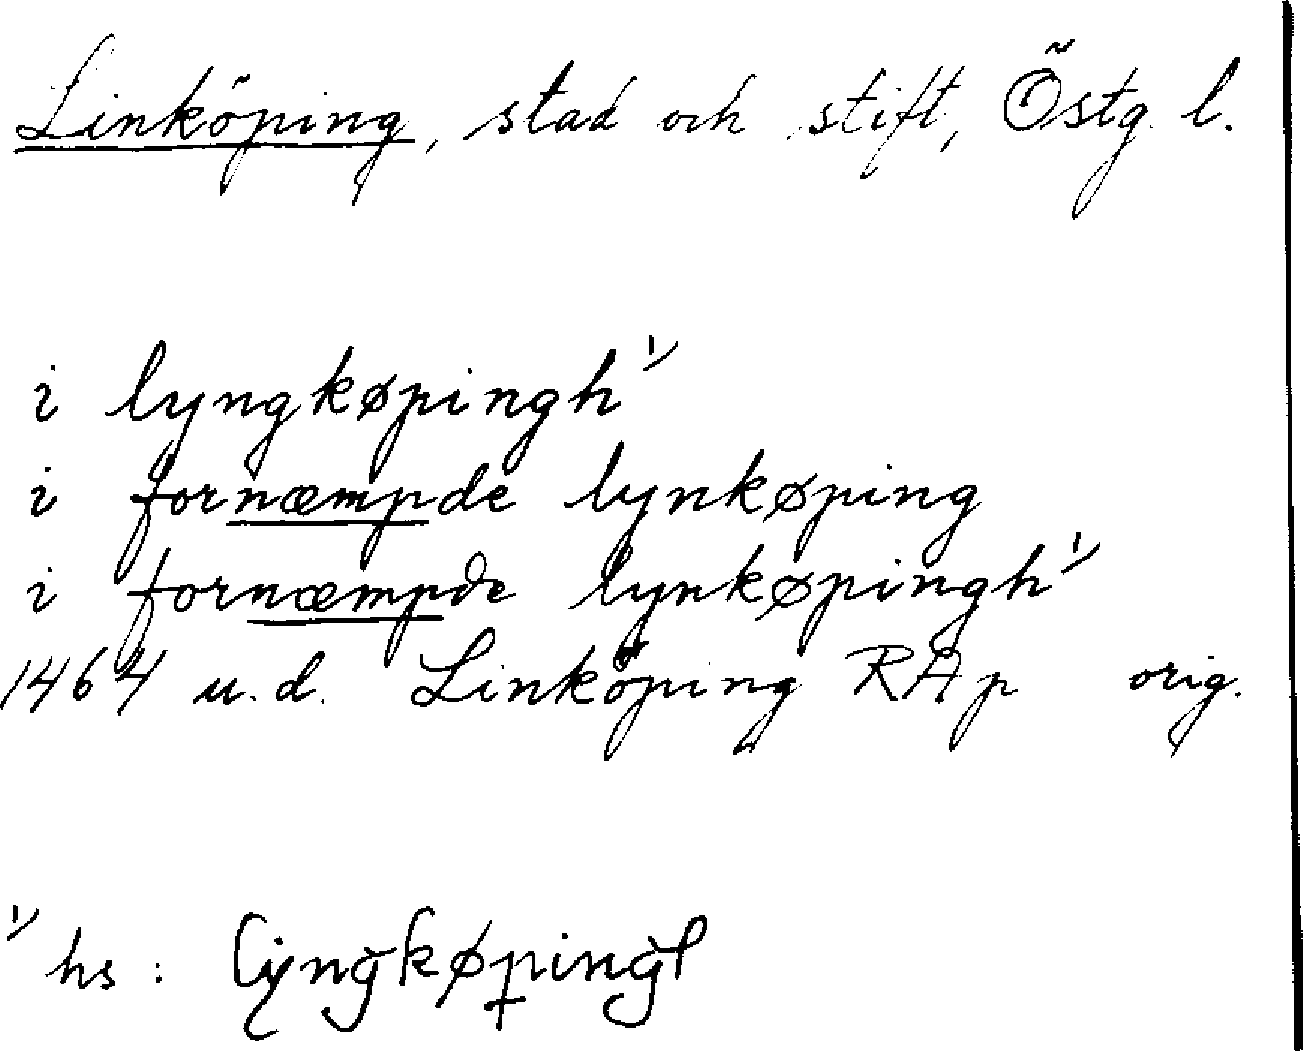 Linköping, stad och stift, Östg. l.
i lyngkøpingh 1)
i fornæmpde lynkøping
i fornæmpde lynkøpingh 1)
1464 u.d. Linköping RAp orig.
1) hs : lyngkøping